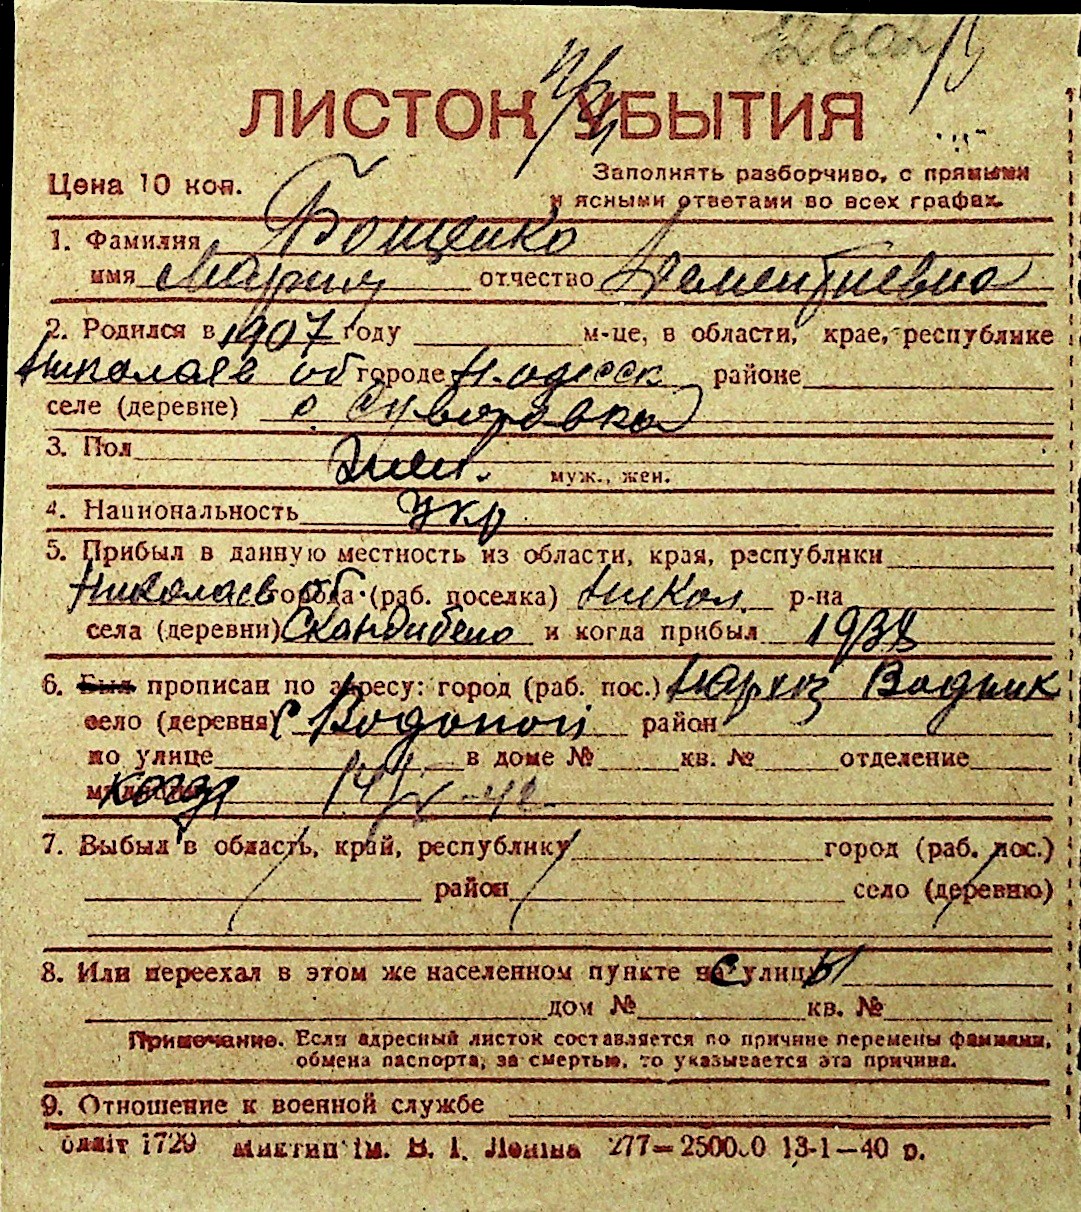 12602
ЛИСТОК УБЫТИЯ
Цена 10 коп.
Заполнять разборчиво, с прямыми
и ясными ответами во всех графах.
1. Фамилия Бощенко
имя Мария отчество Дементиевна
2. Родился в 1907 году м-це, в области, крае, республике
Николаев об городе Н. одесск районе
селе (деревне) с. Суворовка
3. Пол жен. муж., жен.
4. Национальность Укр
5. Прибыл в данную местность из области, края, республики
Николаев об. города (раб. поселка) Никол. р-на
села (деревни) Скандибено и когда прибыл 1938
6. Был прописан по адресу: город (раб. пос.) Водник
село (деревня) с Водопой район
по улице в доме № кв. № отделение
7. Выбыл в область, край, республику город (раб. пос.)
район село (деревню)
8. Или переехал в этом же населенном пункте с улицы
дом № кв. №
Примечание. Если адресный листок составляется по причине перемены фамилии,
обмена паспорта, за смертью, то указывается эта причина.
9. Отношение к военной службе
1729 Миктип ім. В. І. Леніна 13-1—40 р.